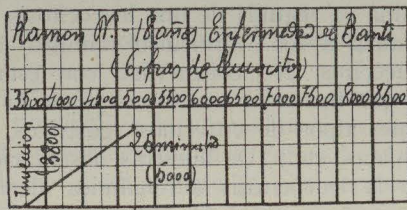 Ramon N. - 18 años Enfermedad de Banti
(Cifras de leucocitos)
3500 4000 4500 5000 5500 6000 6500 7000 7500 8000 8500
Inyeccion
(3800)
25 minutos
(5000)